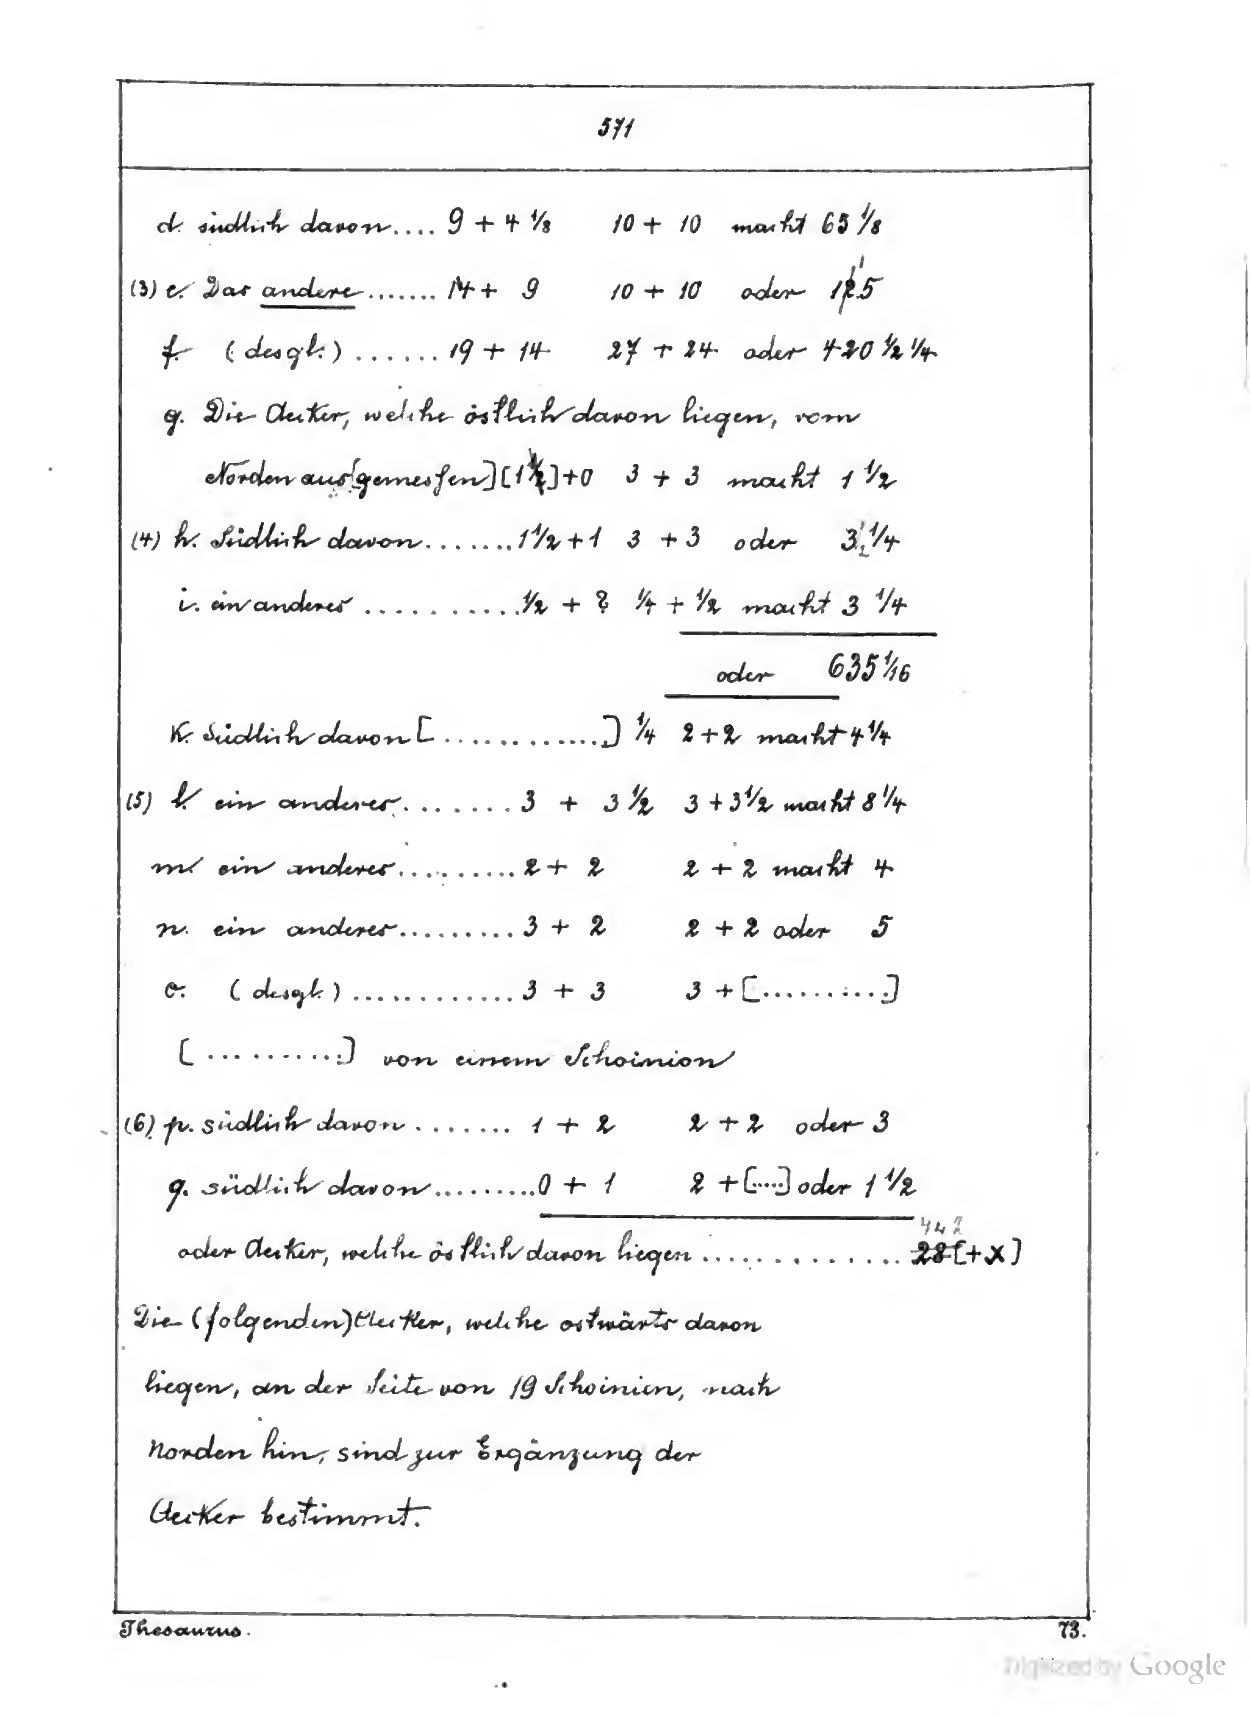 571
d. südlich davon.... 9 + 4 1/8 10 + 10 macht 65 1/8
(3) e. Das andere....... 14 + 9 10 + 10 oder 115
f. (desgl.) ...... 19 + 14 27 + 24 oder 420 1/2 1/4
g. Die Aecker, welche östlich davon liegen, vom
Norden aus [gemessen] [1] + 0 3 + 3 macht 1 1/2
(4) h. Südlich davon....... 1 1/2 + 1 3 + 3 oder 3 1/2 1/4
i. ein anderes .......... 1/2 + ? 1/4 + 1/2 macht 3 1/4
oder 635 1/16
k. Südlich davon [.............] 1/4 2 + 2 macht 4 1/4
(5) l. ein anderes....... 3 + 3 1/2 3 + 3 1/2 macht 8 1/4
m. ein anderes......... 2 + 2 2 + 2 macht 4
n. ein anderes......... 3 + 2 2 + 2 oder 5
o. (desgl.) ............. 3 + 3 3 + [..........]
[...........] von einem Schoinion
(6) p. südlich davon ....... 1 + 2 2 + 2 oder 3
q. südlich davon......... 0 + 1 2 + [.....] oder 1 1/2
oder Aecker, welche östlich davon liegen ............. 28 [+ x]
Die (folgenden) Aecker, welche ostwärts davon
liegen, an der Seite von 19 Schoinien, nach
Norden hin, sind zur Ergänzung der
Aecker bestimmt.
Thesaurus. 73.
Digitized by Google